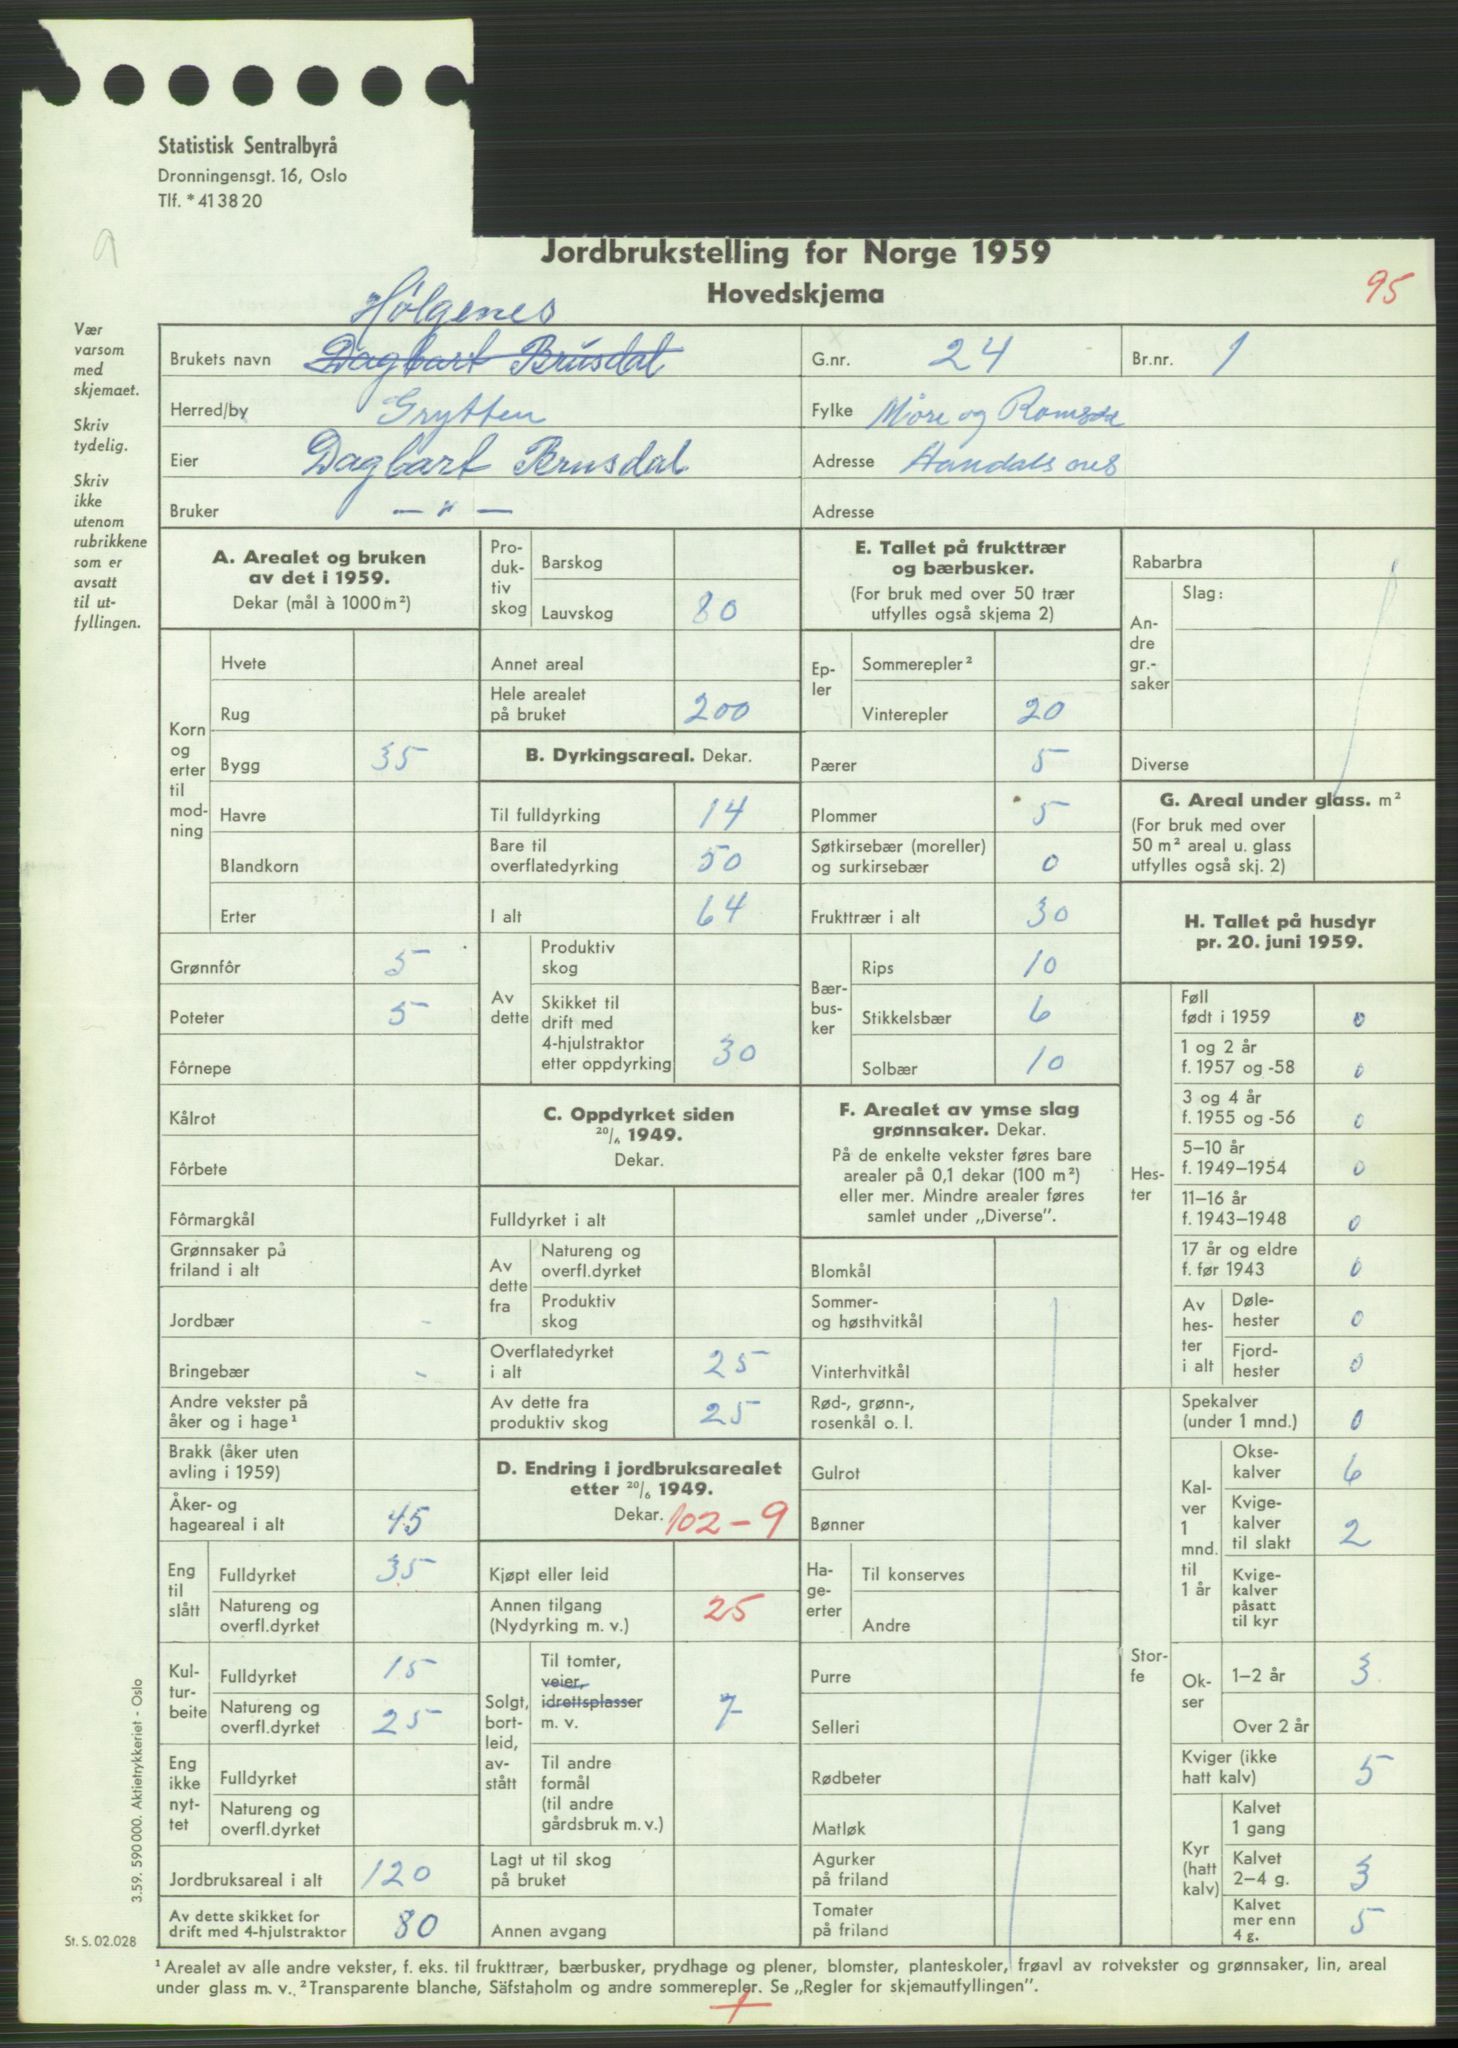 Statistisk Sentralbyrå
Dronningensgt. 16, Oslo
Tlf. * 41 38 20
Jordbrukstelling for Norge 1959
Hovedskjema
95
Vær varsom med skjemaet.
Skriv tydelig.
Skriv ikke utenom rubrikkene som er avsatt til ut-fyllingen.
Hølgenes
Brukets navn Dagbart Brusdal G.nr. 24 Br.nr. 1
Herred/by Grytten Fylke Møre og Romsdal
Eier Dagbart Brusdal Adresse Aandalsnes
Bruker — " — Adresse
A. Arealet og bruken av det i 1959.
Dekar (mål à 1000 m²)
Korn og erter til mod-ning
Hvete
Rug
Bygg 35
Havre
Blandkorn
Erter
Grønnfôr 5
Poteter 5
Fôrnepe
Kålrot
Fôrbete
Fôrmargkål
Grønnsaker på friland i alt
Jordbær -
Bringebær -
Andre vekster på åker og i hage¹
Brakk (åker uten avling i 1959)
Åker- og hageareal i alt 45
Eng til slått
Fulldyrket 35
Natureng og overfl.dyrket
Kul-tur-beite
Fulldyrket 15
Natureng og overfl.dyrket 25
Eng ikke nyt-tet
Fulldyrket
Natureng og overfl.dyrket
Jordbruksareal i alt 120
Av dette skikket for drift med 4-hjulstraktor 80
Pro-duk-tiv skog
Barskog
Lauvskog 80
Annet areal
Hele arealet på bruket 200
B. Dyrkingsareal. Dekar.
Til fulldyrking 14
Bare til overflatedyrking 50
I alt 64
Av dette
Produktiv skog
Skikket til drift med 4-hjulstraktor etter oppdyrking 30
C. Oppdyrket siden 20/6 1949.
Dekar.
Fulldyrket i alt
Av dette fra
Natureng og overfl.dyrket
Produktiv skog
Overflatedyrket i alt 25
Av dette fra produktiv skog 25
D. Endring i jordbruksarealet etter 20/6 1949.
Dekar. 102-9
Kjøpt eller leid
Annen tilgang (Nydyrking m. v.) 25
Solgt, bort-leid, av-stått
Til tomter, veier, idrettsplasser m. v. 7
Til andre formål (til andre gårdsbruk m. v.)
Lagt ut til skog på bruket
Annen avgang
E. Tallet på frukttrær og bærbusker.
(For bruk med over 50 trær utfylles også skjema 2)
Ep-ler
Sommerepler²
Vinterepler 20
Pærer 5
Plommer 5
Søtkirsebær (moreller) og surkirsebær 0
Frukttrær i alt 30
Bær-bus-ker
Rips 10
Stikkelsbær 6
Solbær 10
F. Arealet av ymse slag grønnsaker. Dekar.
På de enkelte vekster føres bare arealer på 0,1 dekar (100 m²) eller mer. Mindre arealer føres samlet under „Diverse”.
Blomkål
Sommer- og høsthvitkål
Vinterhvitkål
Rød-, grønn-, rosenkål o. l.
Gulrot
Bønner
Ha-ge-erter
Til konserves
Andre
Purre
Selleri
Rødbeter
Matløk
Agurker på friland
Tomater på friland
Rabarbra
An-dre gr.-saker
Slag:
Diverse
G. Areal under glass. m²
(For bruk med over 50 m² areal u. glass utfylles også skj. 2)
H. Tallet på husdyr pr. 20. juni 1959.
Hes-ter
Føll født i 1959 0
1 og 2 år f. 1957 og -58 0
3 og 4 år f. 1955 og -56 0
5–10 år f. 1949–1954 0
11–16 år f. 1943–1948 0
17 år og eldre f. før 1943 0
Av hes-ter i alt
Døle-hester 0
Fjord-hester 0
Stor-fe
Spekalver (under 1 mnd.) 0
Kal-ver 1 mnd. til 1 år
Okse-kalver 6
Kvige-kalver til slakt 2
Kvige-kalver påsatt til kyr
Ok-ser
1–2 år 3
Over 2 år
Kviger (ikke hatt kalv) 5
Kyr (hatt kalv)
Kalvet 1 gang
Kalvet 2–4 g. 3
Kalvet mer enn 4 g. 5
3.59. 590 000. Aktietrykkeriet - Oslo
St. S. 02.028
¹ Arealet av alle andre vekster, f. eks. til frukttrær, bærbusker, prydhage og plener, blomster, planteskoler, frøavl av rotvekster og grønnsaker, lin, areal
under glass m. v. ² Transparente blanche, Säfstaholm og andre sommerepler. Se „Regler for skjemautfyllingen”.